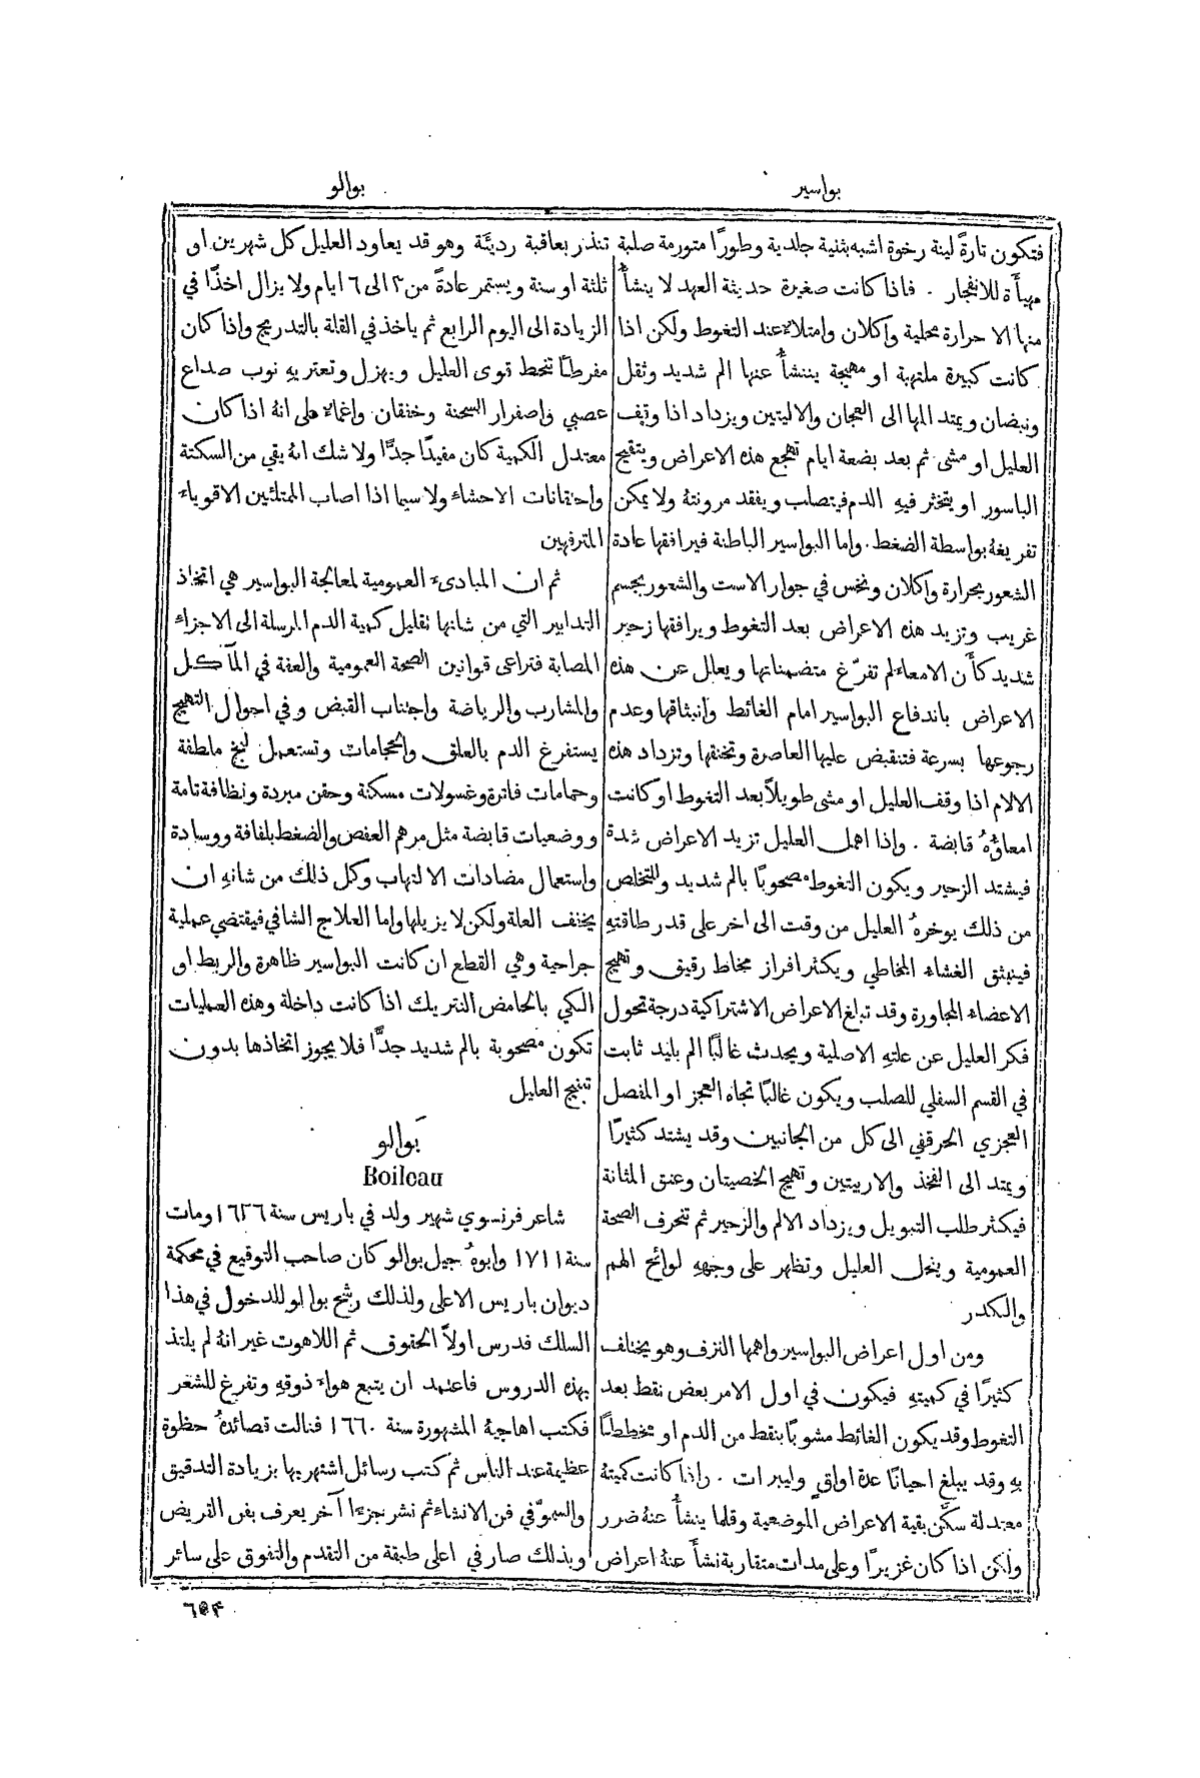 بواسير
بوالو
فتكون تارةً لينة رخوة اشبه بثنية جلدية وطورًا متورمة صلبة
مهيأَة للانفجار . فاذا كانت صغيرة حديثة العهد لا ينشأُ
منها الا حرارة محلية واكلان وامتلاء عند التغوط ولكن اذا
كانت كبيرة ملتهبة او مهيجة ينشأُ عنها الم شديد وثقل
ونبضان ويمتد المها الى العجان والاليتين ويزداد اذا وقف
العليل او مشى ثم بعد بضعة ايام تهجع هذه الاعراض ويتقيح
الباسور او يتخثر فيهِ الدم فيتصلب ويفقد مرونتهُ ولا يمكن
تفريغهُ بواسطة الضغط. واما البواسير الباطنة فيرافقها عادة
الشعور بحرارة واكلان ونخس في جوار الاست والشعور بجسم
غريب وتزيد هذه الاعراض بعد التغوط ويرافقها زحير
شديد كأَن الامعاء لم تفرّغ متضمناتها ويعلل عن هذه
الاعراض باندفاع البواسير امام الغائط وانبثاقها وعدم
رجوعها بسرعة فتنقبض عليها العاصرة وتخنقها وتزداد هذه
الالام اذا وقف العليل او مشى طويلاً بعد التغوط او كانت
امعاؤهُ قابضة . واذا اهمل العليل تزيد الاعراض شدة
فيشتد الزحير ويكون التغوط مصحوبًا بالم شديد وللتخلص
من ذلك يوخرهُ العليل من وقت الى اخر على قدر طاقتهِ
فينبثق الغشاء المخاطي ويكثر افراز مخاط رقيق وتهيج
الاعضاء المجاورة وقد تبلغ الاعراض الاشتراكية درجة تحول
فكر العليل عن علتهِ الاصلية ويحدث غالبًا الم بليد ثابت
في القسم السفلي للصلب ويكون غالبًا تجاه العجز او المفصل
العجزي الحرقفي الى كل من الجانبين وقد يشتد كثيرًا
ويمتد الى الفخذ والاربيتين وتهيج الخصيتان وعنق المثانة
فيكثر طلب التبويل ويزداد الالم والزحير ثم تنحرف الصحة
العمومية وينحل العليل وتظهر على وجههِ لوائح الهم
والكدر
ومن اول اعراض البواسير واهمها النزف وهو يختلف
كثيرًا في كميتهِ فيكون في اول الامر بعض نقط بعد
التغوط وقد يكون الغائط مشوبًا بنقط من الدم او مخططًا
بهِ وقد يبلغ احيانًا عدة اواقٍ وليبرات . واذا كانت كميتهُ
معتدلة سكّن بقية الاعراض الموضعية وقلما ينشأُ عنهُ ضرر
ولكن اذا كان غزيرًا وعلى مدات متقاربة نشأَ عنهُ اعراض
تنذر بعاقبة رديئة وهو قد يعاود العليل كل شهرين او
ثلثة او سنة ويستمر عادةً من ٣ الى ٦ ايام ولا يزال اخذًا في
الزيادة الى اليوم الرابع ثم ياخذ في القلة بالتدريج واذا كان
مفرطًا تنحط قوى العليل ويهزل وتعتريهِ نوب صداع
عصبي واصفرار السحنة وخفقان واغماء على انهُ اذا كان
معتدل الكمية كان مفيدًا جدًّا ولا شك انهُ يقي من السكتة
واحتقانات الاحشاء ولا سيما اذا اصاب الممتلئين الاقوياء
المترفهين
ثم ان المبادىء العمومية لمعالجة البواسير هي اتخاذ
التدابير التي من شانها تقليل كمية الدم المرسلة الى الاجزاء
المصابة فتراعى قوانين الصحة العمومية والعفة في المآكل
والمشارب والرياضة واجتناب القبض وفي احوال التهيج
يستفرغ الدم بالعلق والحجامات وتستعمل لبخ ملطفة
وحمامات فاترة وغسولات مسكنة وحقن مبردة ونظافة تامة
ووضعيات قابضة مثل مرهم العفص والضغط بلفافة ووسادة
واستعمال مضادات الالتهاب وكل ذلك من شانهِ ان
يخفف العلة ولكن لا يزيلها واما العلاج الشافي فيقتضي عملية
جراحية وهي القطع ان كانت البواسير ظاهرة والربط او
الكي بالحامض النتريك اذا كانت داخلة وهذه العمليات
تكون مصحوبة بالم شديد جدًّا فلا يجوز اتخاذها بدون
تبنيج العليل
بَوالو
Boileau
شاعر فرنسوي شهير ولد في باريس سنة ١٦٣٦ ومات
سنة ١٧١١ وابوهُ جيل بوالو كان صاحب التوقيع في محكمة
ديوان باريس الاعلى ولذلك رشح بوالو للدخول في هذا
السلك فدرس اولاً الحقوق ثم اللاهوت غير انهُ لم يلتذ
بهذه الدروس فاعتمد ان يتبع هواء ذوقهِ وتفرغ للشعر
فكتب اهاجيهُ المشهورة سنة ١٦٦٠ فنالت قصائدهُ حظوة
عظيمة عند الناس ثم كتب رسائل اشتهر بها بزيادة التدقيق
والسموّ في فن الانشاء ثم نشر جزءا آخر يعرف بفن القريض
وبذلك صار في اعلى طبقة من التقدم والتفوق على سائر
٦٥٤